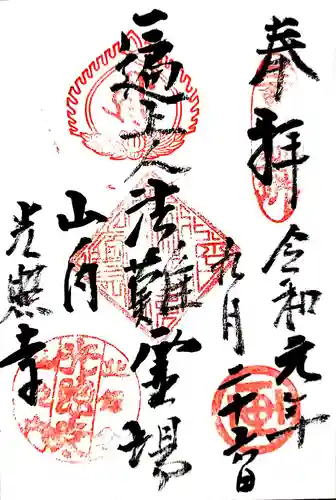 奉拝
令和元年
九月二十日
一遍上人法難霊場
山内
光照寺